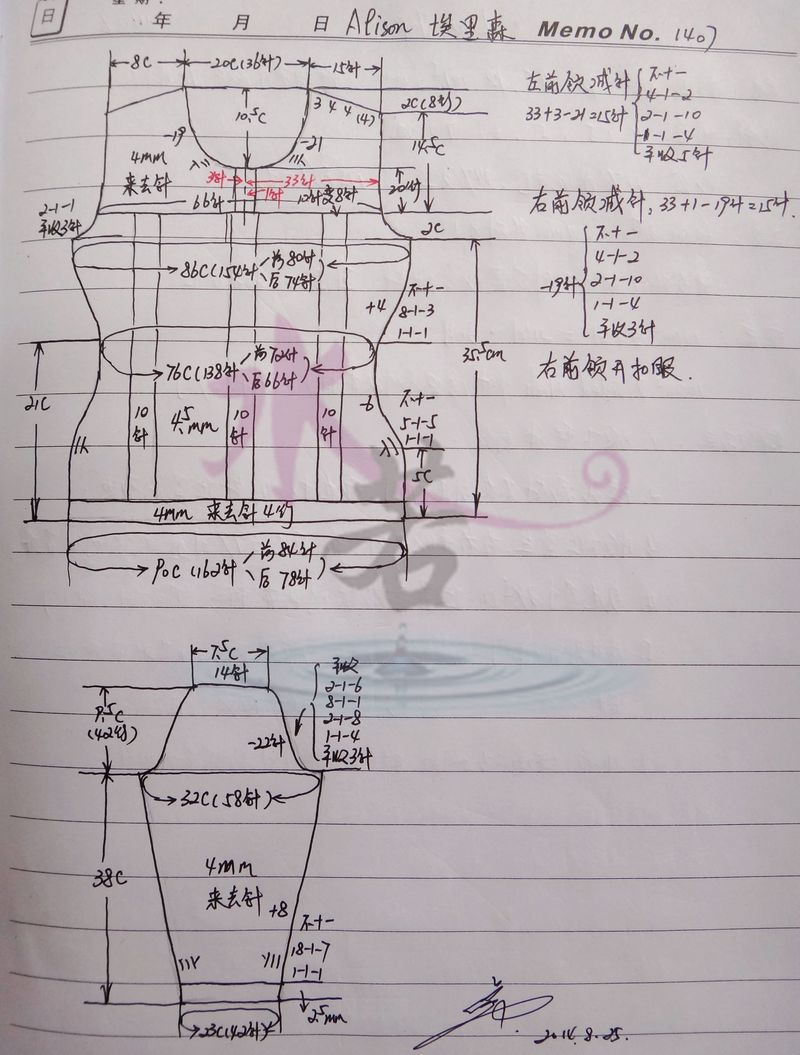 日
年 月 日 Alison 埃里森 Memo No. 1407
8C 20C(36针) 15针
10.5C
3 4 4 (4)
2C(8行)
14.5C
-19
-21
4mm
来去针
3针
33针
1针
66针
10针变8针
20行
2-1-1
平收3针
2C
86C(154针 前80针
后74针)
+4
不+-
8-1-3
1-1-1
35.5cm
76C(138针 前72针
后66针)
21C
10针
4.5mm
10针
10针
-6
不+-
5-1-5
1-1-1
5C
4mm 来去针4行
90C(162针 前84针
后78针)
左前领减针
33+3-21=15针
不+-
4-1-2
2-1-10
1-1-4
平收5针
右前领减针,33+1-19针=15针.
-19针
不+-
4-1-2
2-1-10
1-1-4
平收3针
右前领开扣眼.
水
若
7.5C
14针
9.5C
(42行)
-22针
平收
2-1-6
8-1-1
2-1-8
1-1-4
平收3针
32C(58针)
38C
4mm
来去针
+8
不+-
18-1-7
1-1-1
2.5mm
23C(42针)
2014.8.25.